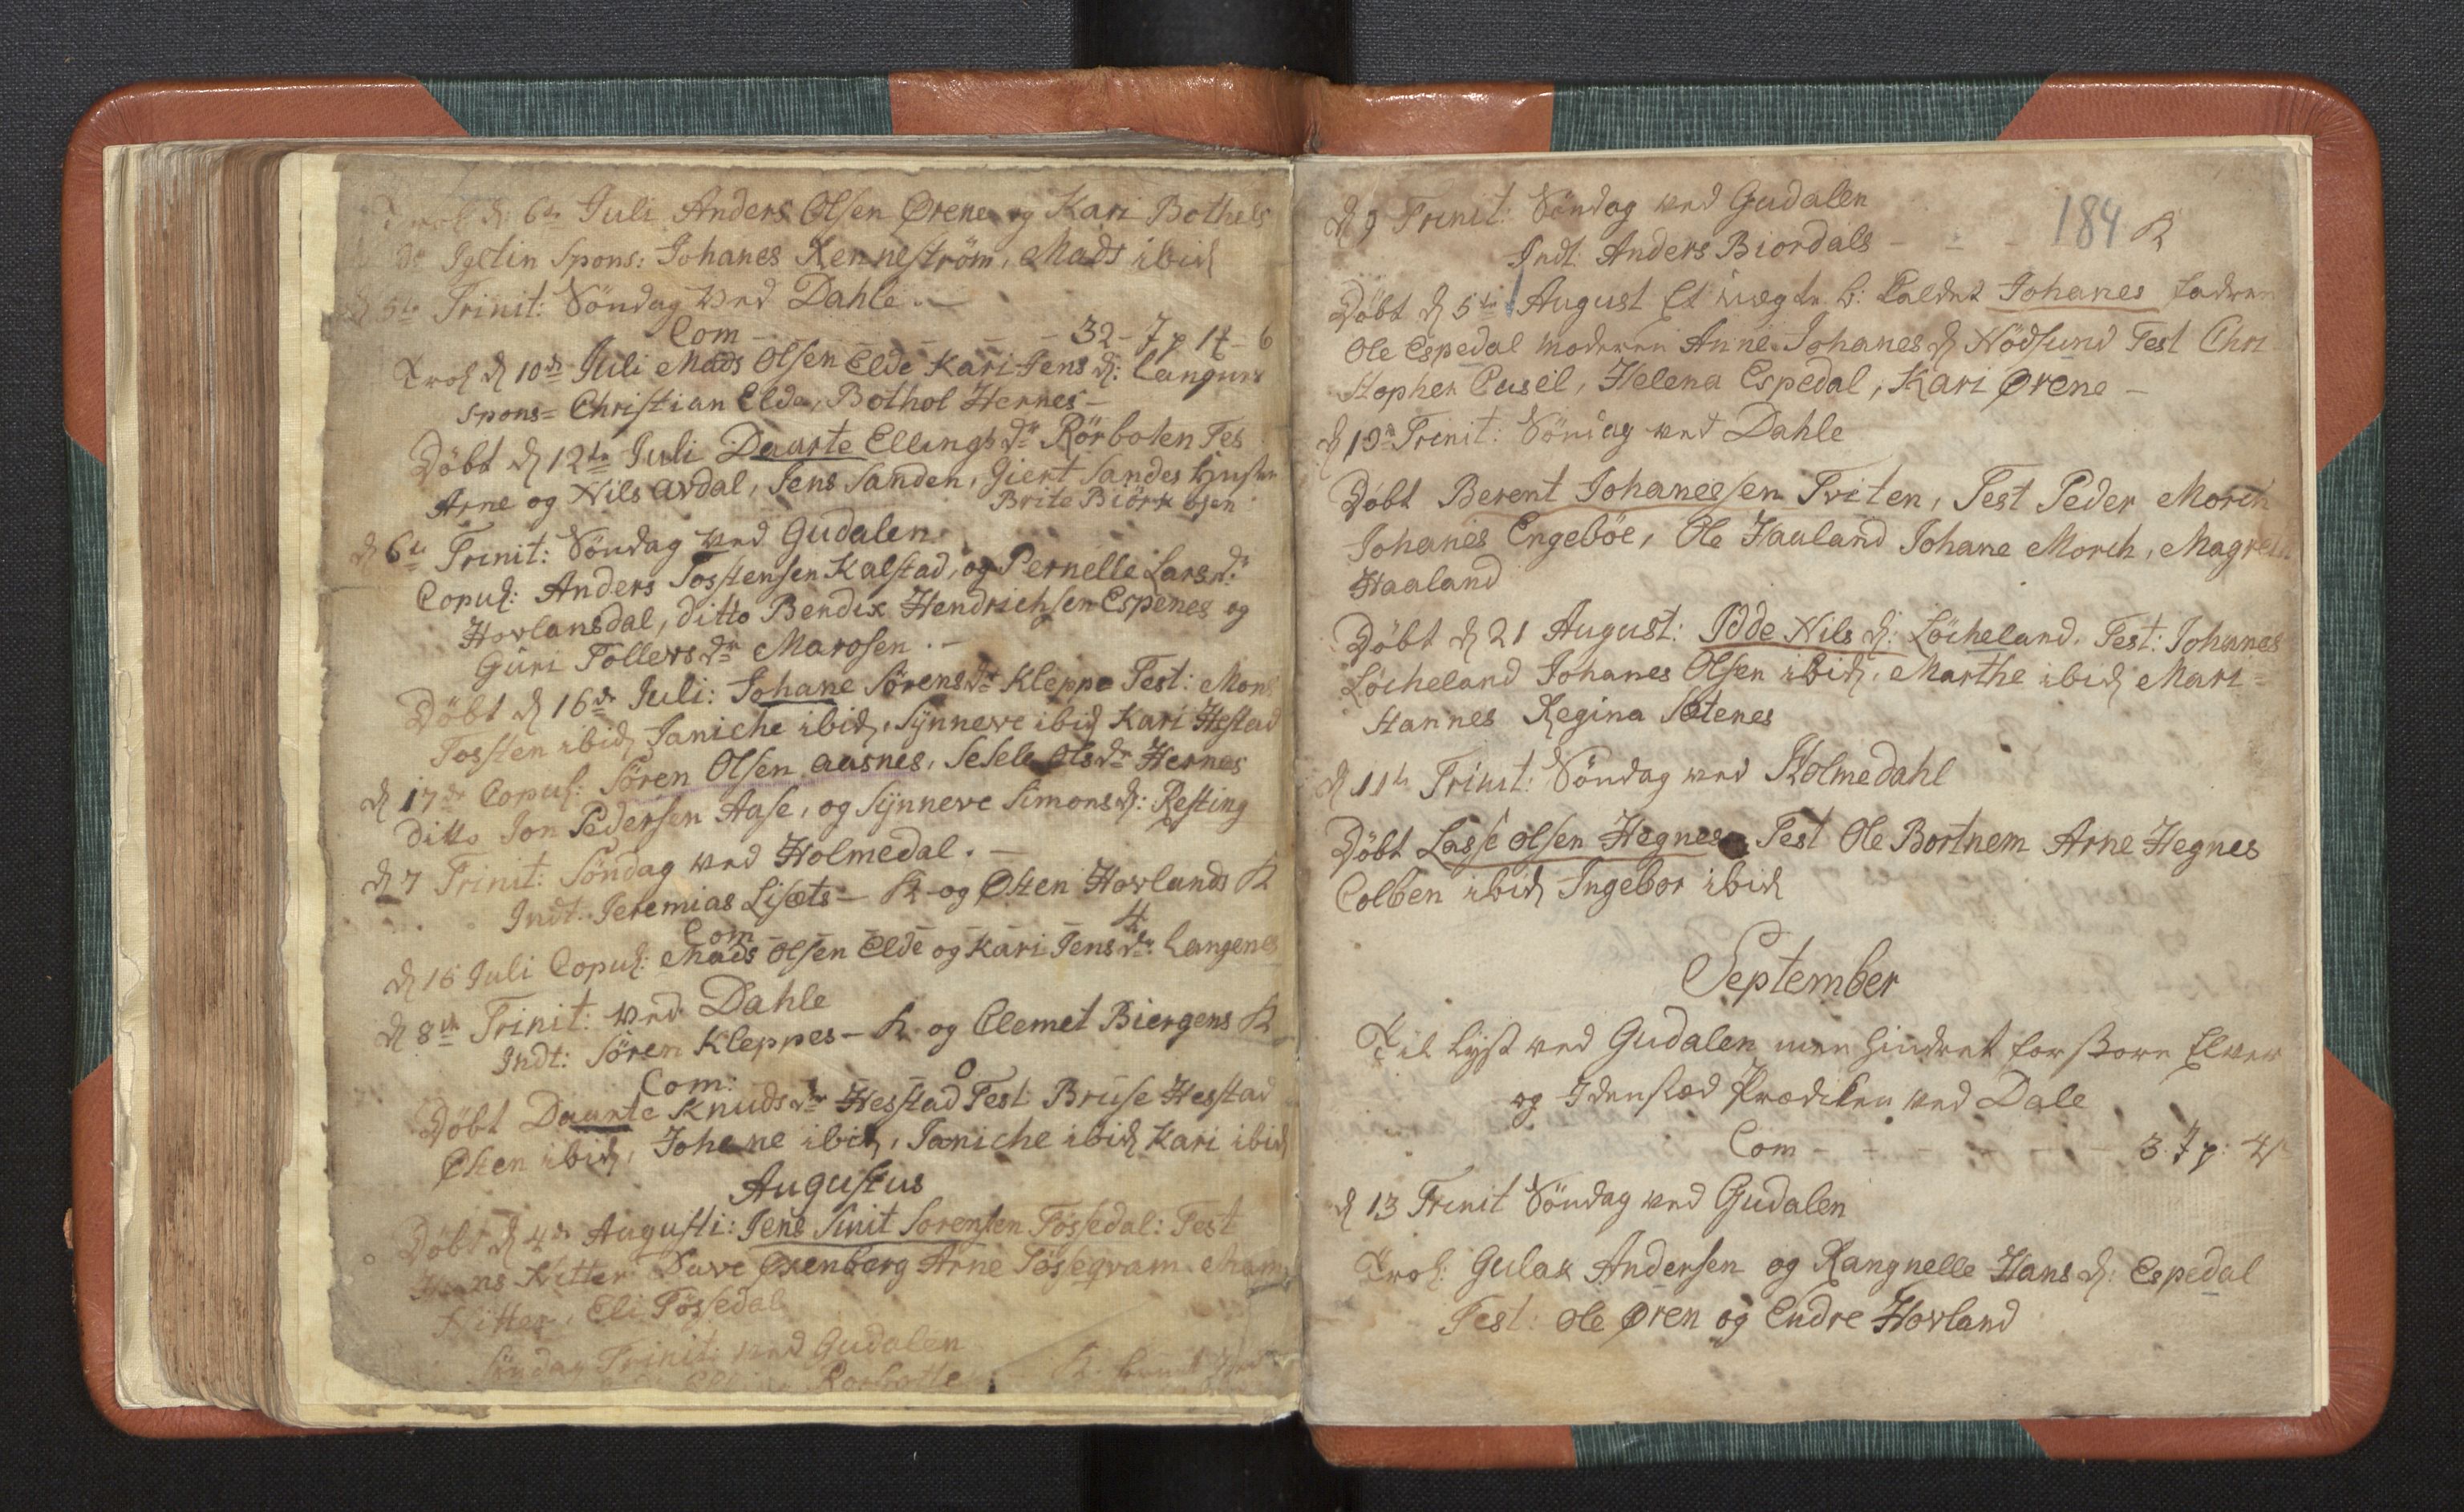 Trol d 6te Juli Anders Olsen Ørene og Kari Bothels
dr Igelin Spons: Johanes Renneström, Mads ibid
d 5te Trinit: Söndag ved Dahle
Com - - - - - 32 - 7 p 17 - 6
Trol d 10de Juli Mads Olsen Elde Kari Jens d: Langenes
spons= Christian Elde, Bothol Hernes -
Döbt d 12te Juli Daarte Ellings dr Rörboten Tes
Arne og Nils Ardal, Jens Sanden, Giert Sandes Hustru
Brite Biörk osen
d 6te Trinit: Söndag ved Gudalen
Copul: Anders Tostensen Kalstad, og Pernelle Lars dr
Hovlansdal, ditto Bendix Hendrichsen Espenes og
Guri Tollevs dr Marosen . -
Döbt d 16de Juli: Johane Sörens dr Kleppe Test: Mons
Tosten ibid, Janiche ibid, Synneve ibid Kari Hestad
d 17de Copul: Sören Olsen aasnes, Sesele Ols dr Hernes
ditto Jon Pedersen Aase, og Synneve Simons d: Resting
d 7 Trinit: Söndag ved Holmedal . -
Indt. Jeremias Lisets - K og Østen Hovlands K
Com - - - - - 4
d 18 Juli Copul: Mads Olsen Elde og Kari Jens dr: Langenes
d 8de Trinit: ved Dahle
Indt: Sören Kleppes - K og Clemet Biergens K
Com: - - - 0
Döbt Daarte Knuds dr Hesstad Test Bruse Hesstad
Østen ibid, Johane ibid, Janiche ibid Kari ibid
Augustus
Döbt d 4de Augusti: Jens Smit Sorensen Fössedal: Test
Hans Nitter Dave Oxenberg Arne Fösseqvam
Nitter, Eli Fössedal
Söndag Trinit: ved Gudalen
d 9 Trinit: Söndag ved Gudalen
184
Indt: Anders Biordals - - - K
Döbt d 5te August Et uægte b: kaldet Johanes fadren
Ole Espedal moderen Anne Johanes d Nödsund Test Chri
Stopher Eusel, Helena Espedal, Kari Ørene -
d 10de Trinit: Söndag ved Dahle
Döbt Berent Johanessen Tviten, Test Peder Morch
Johanes Engeböe, Ole Haaland Johane Morch, Magrete
Haaland
Döbt d 21 August: Idde Nils d: Löcheland. Test: Johanes
Löcheland Johanes Olsen ibid, Marthe ibid Mari=
Stannes Regina Sætenes
d 11te Trinit: Söndag ved Holmedahl
Döbt Lasse Olsen Hegnes Test Ole Bortnem Arne Hegnes
Colben ibid Ingebor ibid
September
Til Lyst ved Gudalen men hindret for store Elver
og I den stæd Prædiken ved Dale
Com - - - - 3 7 p: 4
d 13 Trinit Söndag ved Gudalen
Trol: Gulak Andersen og Rangnelle Hans d: Espedal
Test: Ole Øren og Endre Hovland